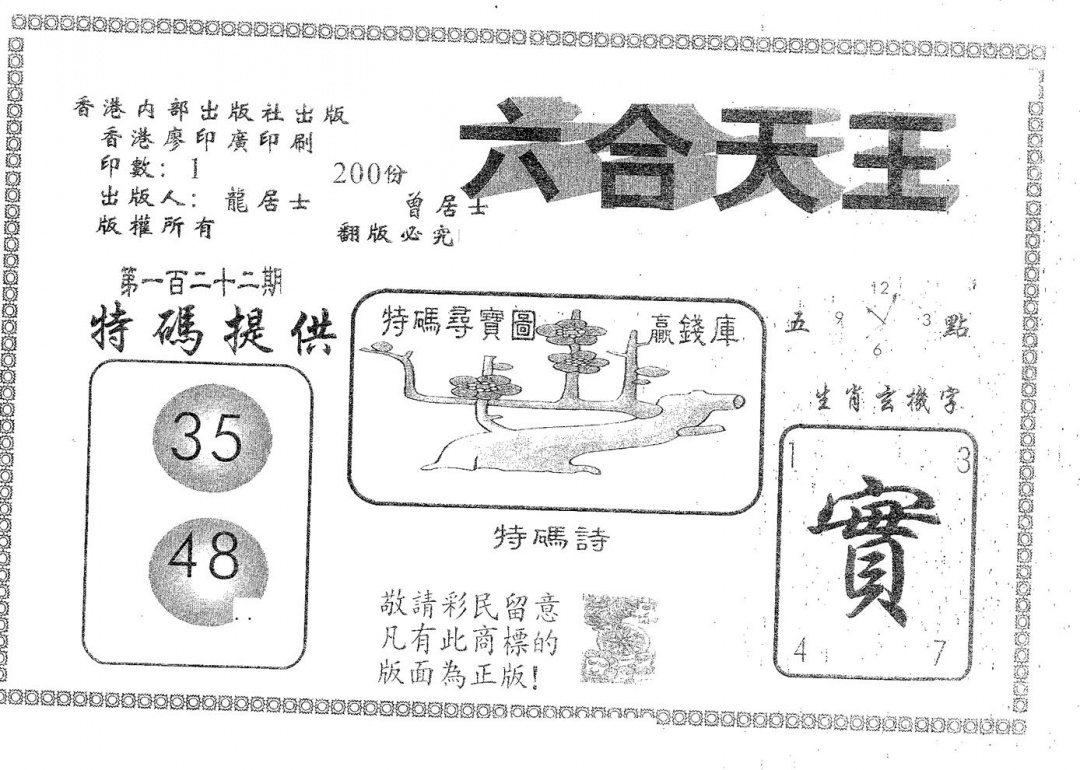 香港内部出版社出版
香港廖印廣印刷
印數：1 200份
出版人：龍居士 曾居士
版權所有 翻版必究
六合天王
第一百二十二期
特碼提供
35
48
特碼尋寶圖
贏錢庫
五 點
12
9 3
6
生肖玄機字
1 3
實
4 7
特碼詩
敬請彩民留意
凡有此商標的
版面為正版！